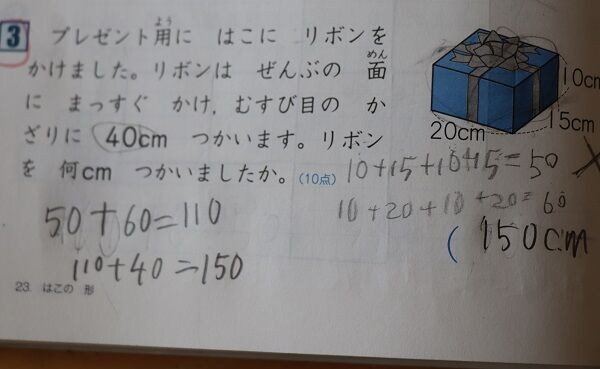 3 プレゼント用に はこに リボンを
よう
かけました。リボンは ぜんぶの 面
めん
に まっすぐ かけ, むすび目の か
ざりに 40cm つかいます。リボン
を 何cm つかいましたか。(10点)
10cm
15cm
20cm
10+15+10+15=50
10+20+10+20=60
50+60=110
110+40=150
(150cm
23. はこの 形